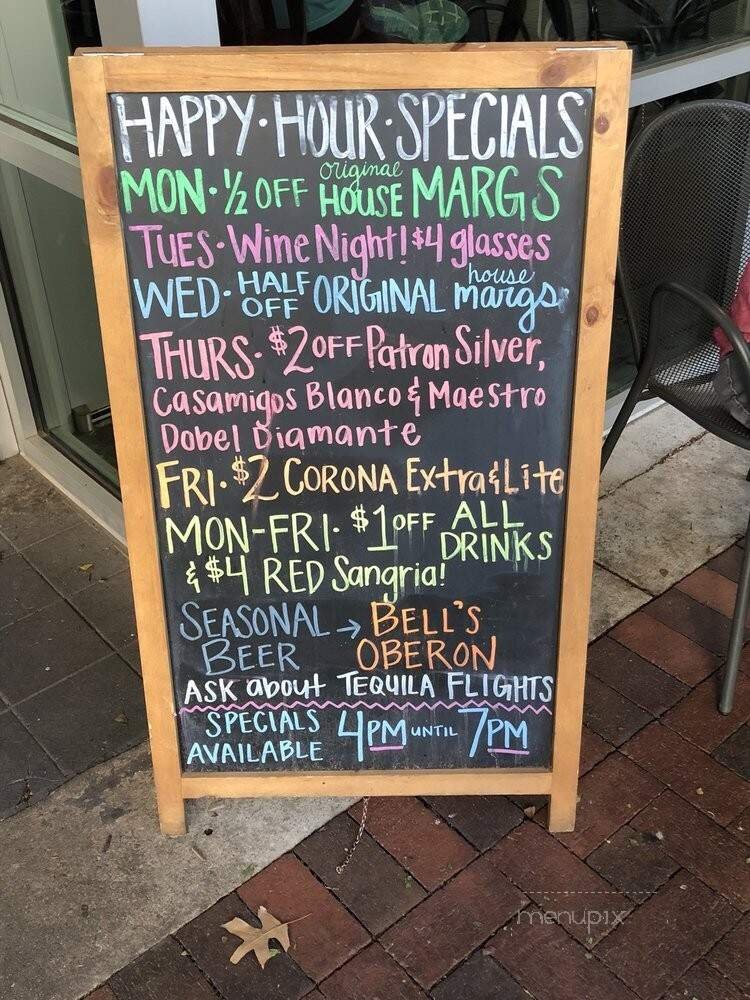 HAPPY·HOUR·SPECIALS
MON·½ OFF original HOUSE MARGS
TUES·Wine Night! $4 glasses
WED· HALF OFF ORIGINAL house margs
THURS· $2 OFF Patron Silver,
Casamigos Blanco & Maestro
Dobel Diamante
FRI·$2 CORONA Extra & Lite
MON-FRI· $1 OFF ALL DRINKS
& $4 RED Sangria!
SEASONAL BEER → BELL'S OBERON
ASK about TEQUILA FLIGHTS
SPECIALS AVAILABLE 4PM UNTIL 7PM
menupix